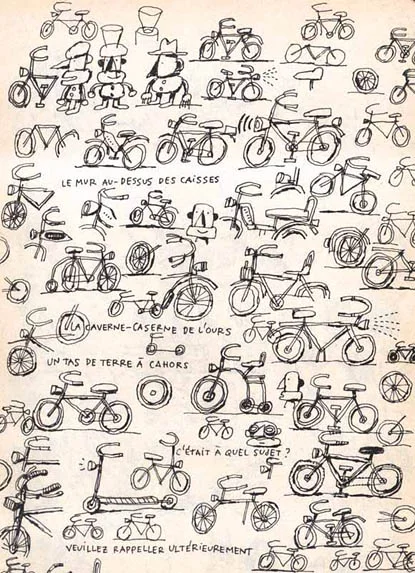 LE MUR AU-DESSUS DES CAISSES
LA CAVERNE-CASERNE DE L'OURS
UN TAS DE TERRE À CAHORS
C'ÉTAIT À QUEL SUJET ?
VEUILLEZ RAPPELLER ULTÉRIEUREMENT